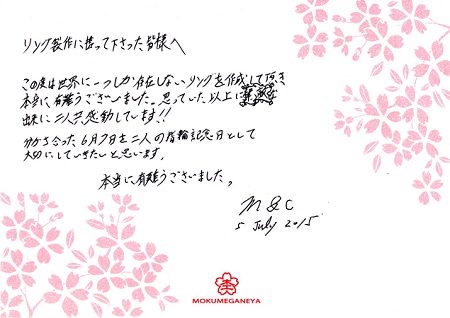 リング製作に携って下さった皆様へ
この度は世界に一つしか存在しないリングを作成して頂き
本当に有難うございました。思っていた以上に
出来に二人で感動しています!!
分かち合った6月7日を二人の指輪記念日として
大切にしていきたいと思います。
本当に有難うございました。
M & C
5 July 2015
MOKUMEGANEYA